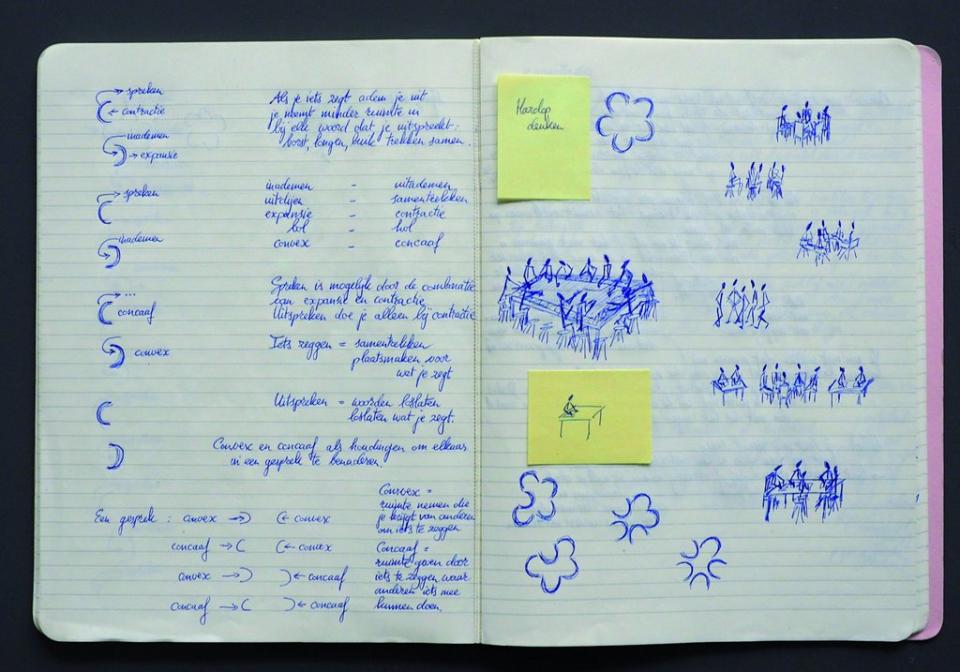 spreken
contractie
Als je iets zegt adem je uit
je neemt minder ruimte in
bij elk woord dat je uitspreekt:
borst, longen, buik trekken samen.
inademen
expansie
spreken
inademen
inademen - uitademen
uitdijen - samentrekken
expansie - contractie
bol - hol
convex - concaaf
...
concaaf
convex
Spreken is mogelijk door de combinatie
van expansie en contractie
Uitspreken doe je alleen bij contractie
Iets zeggen = samentrekken
plaatsmaken voor
wat je zegt
Uitspreken = woorden loslaten
loslaten wat je zegt.
Convex en concaaf als houdingen om elkaar
in een gesprek te benaderen
Een gesprek : convex → ) ( ← convex
concaaf → ( ( ← convex
convex → ) ) ← concaaf
concaaf → ( ) ← concaaf
Convex =
ruimte nemen die
je krijgt van anderen
om iets te zeggen
Concaaf =
ruimte geven door
iets te zeggen waar
anderen iets mee
kunnen doen.
Hardop
denken